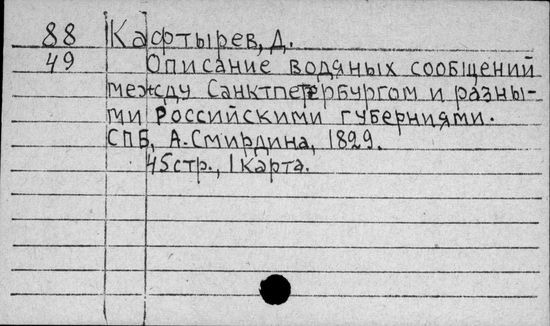 88 Кафтырев, Д.
49 Описание водяных сообщений
между Санктпетербургом и разны-
ми Российскими губерниями.
СПБ, А.Смирдина, 1829.
45стр., 1 карта.